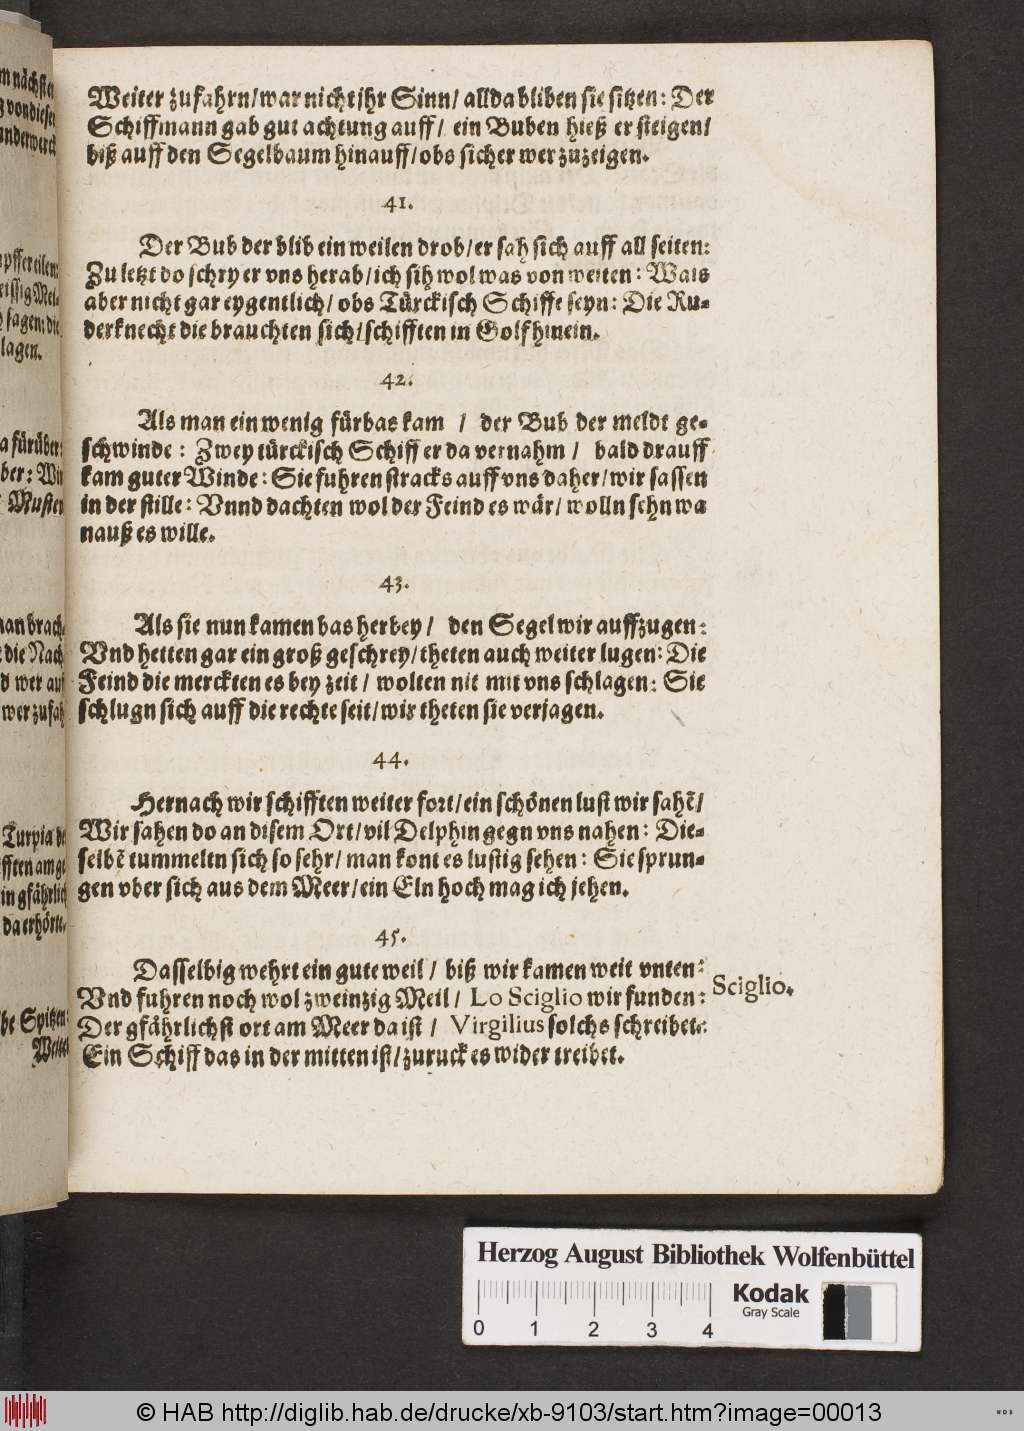 Weiter zufahrn/war nicht jhr Sinn/ allda bliben sie sitzen: Der
Schiffmann gab gut achtung auff/ ein Buben hieß er steigen/
biß auff den Segelbaum hinauff/obs sicher wer zuzeigen.
41.
Der Bub der blib ein weilen drob/er sah sich auff all seiten:
Zu letzt do schry er vns herab/ich sih wol was von weiten: Wais
aber nicht gar eygentlich/ obs Türckisch Schiffe seyn: Die Ru-
derknecht die brauchten sich/schifften in Golf hinein.
42.
Als man ein wenig fürbas kam / der Bub der meldt ge-
schwinde: Zwey türckisch Schiff er da vernahm / bald drauff
kam guter Winde: Sie fuhren stracks auff vns daher/wir sassen
in der stille: Vnnd dachten wol der Feind es wär/ wolln sehn wa
nauß es wille.
43.
Als sie nun kamen bas herbey/ den Segel wir auffzugen:
Vnd hetten gar ein groß geschrey/theten auch weiter lugen: Die
Feind die merckten es bey zeit/ wolten nit mit vns schlagen: Sie
schlugn sich auff die rechte seit/wir theten sie verjagen.
44.
Hernach wir schifften weiter fort/ein schönen lust wir sahẽ/
Wir sahen do an disem Ort/vil Delphin gegn vns nahen: Die-
selbẽ tummeltn sich so sehr/man kont es lustig sehen: Sie sprun-
gen vber sich aus dem Meer/ein Eln hoch mag ich jehen.
45.
Dasselbig wehrt ein gute weil/ biß wir kamen weit vnten:
Vnd fuhren noch wol zweinzig Meil/ Lo Sciglio wir funden:
Sciglio.
Der gfährlichst ort am Meer da ist / Virgilius solchs schreibet:
Ein Schiff das in der mitten ist/zuruck es wider treibet.
m nächsten
von dieser
underwerck
pffer eilen:
eissig Mel-
sagen: die
lagen.
a fürüber:
ber: Wir
Musten
man brach-
die Nach
d wer auf
wer zufah
Turpia
fften am
in gfährlich
da erhörte.
be Spitzen:
Weiter
Herzog August Bibliothek Wolfenbüttel
0 1 2 3 4
Kodak
Gray Scale
© HAB http://diglib.hab.de/drucke/xb-9103/start.htm?image=00013